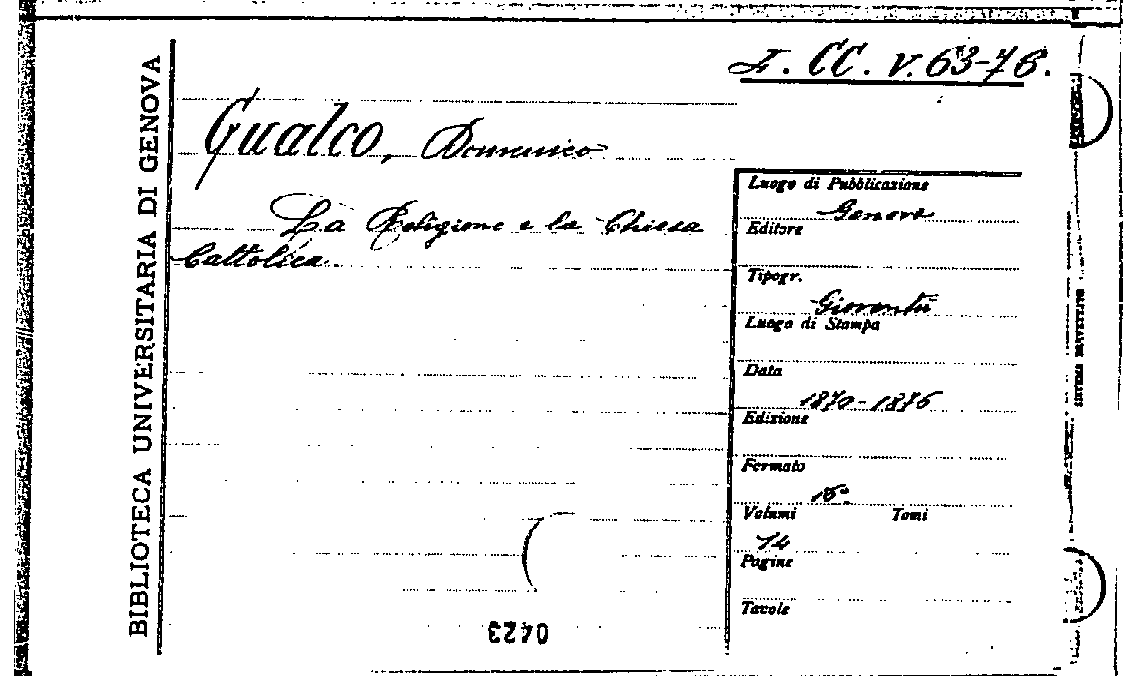 F. CC. V. 63-76.
BIBLIOTECA UNIVERSITARIA DI GENOVA
Gualco, Domenico
La Religione e la Chiesa
Cattolica
Luogo di Pubblicazione
Genova
Editore
Tipogr.
Gioventù
Luogo di Stampa
Data
1870-1876
Edizione
Formato
16°
Volumi Tomi
14
Pagine
Tavole
0423